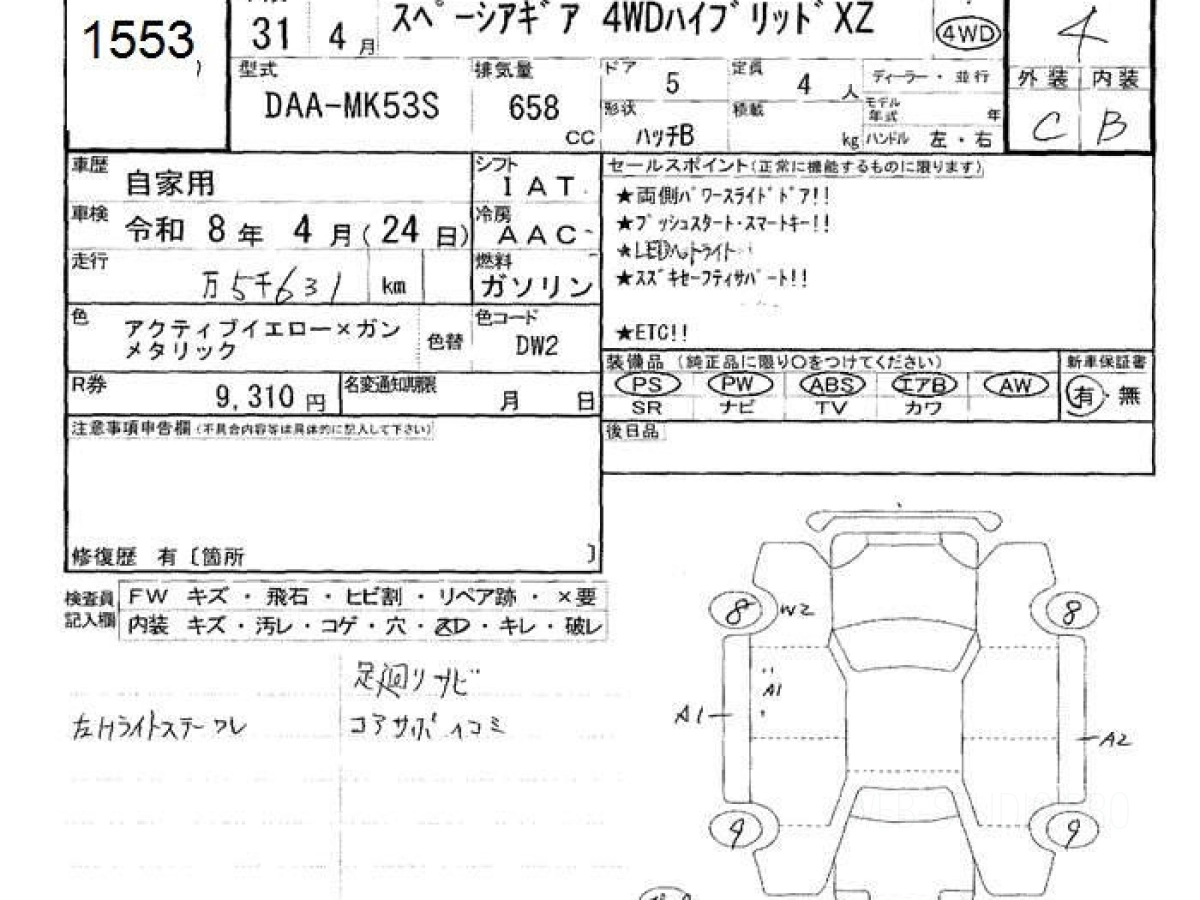 1553
31 4月
スペーシアギア 4WDハイブリッドXZ
4WD
4
型式
DAA-MK53S
排気量
658
CC
ドア
5
定員
4
人
形状
ハッチB
積載
kg
ディーラー・並行
モデル年式
年
ハンドル 左・右
外装 内装
C B
車歴
自家用
シフト
1AT
車検
令和 8年 4月(24日)
冷房
AAC
走行
万5千631 km
燃料
ガソリン
色
アクティブイエロー×ガン
メタリック
色替
色コード
DW2
R券
9,310 円
名変通知期限
月 日
セールスポイント(正常に機能するものに限ります)
★両側パワースライドドア!!
★プッシュスタート・スマートキー!!
★LEDヘッドライト
★スズキセーフティサポート!!
★ETC!!
装備品 (純正品に限り○をつけてください)
PS PW ABS エアB AW
SR ナビ TV カワ
新車保証書
有・無
後日品
注意事項申告欄(不具合内容等は具体的に記入して下さい)
修復歴 有〔箇所 〕
検査員
記入欄
FW キズ・飛石・ヒビ割・リペア跡・×要
内装 キズ・汚レ・コゲ・穴・・キレ・破レ
足廻りサビ
左Hライトステーワレ
コアサポ凹コミ
8
W2
8
A1
A1
A2
9
9